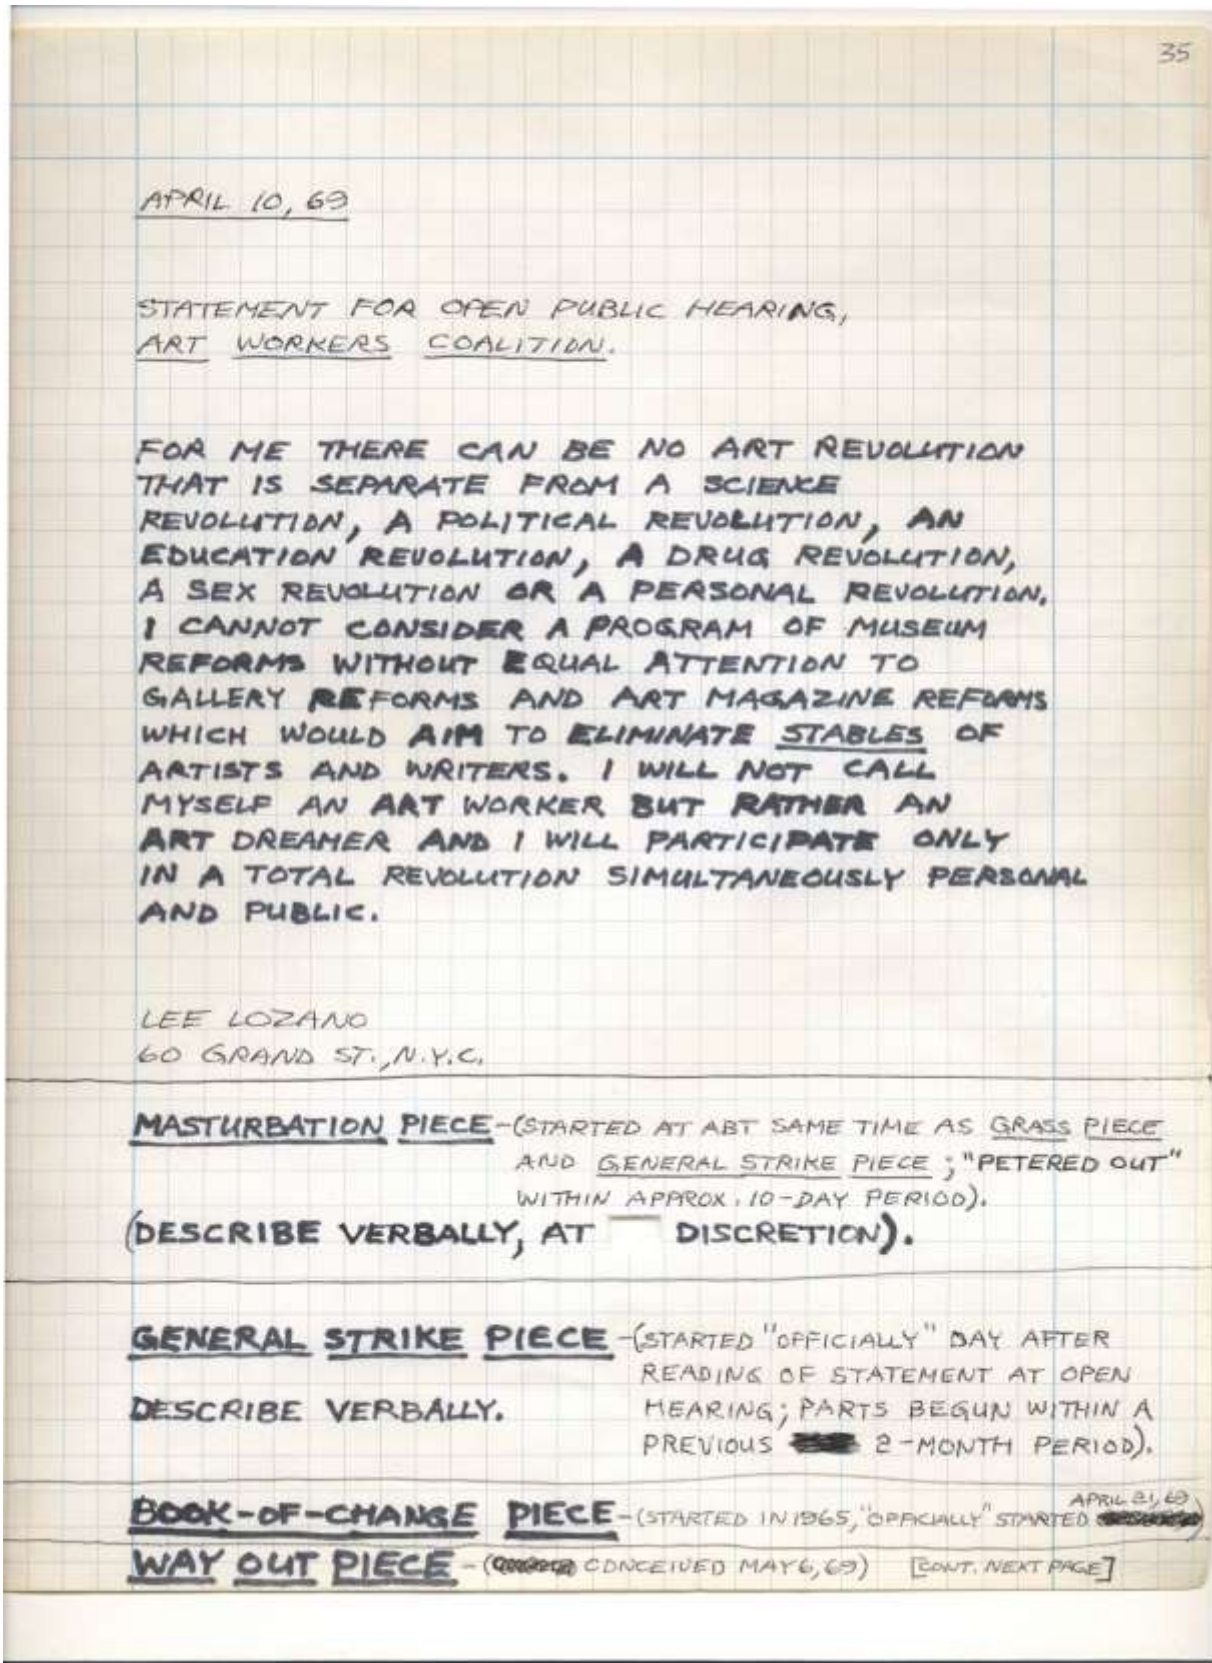 35
APRIL 10, 69
STATEMENT FOR OPEN PUBLIC HEARING,
ART WORKERS COALITION.
FOR ME THERE CAN BE NO ART REVOLUTION
THAT IS SEPARATE FROM A SCIENCE
REVOLUTION, A POLITICAL REVOLUTION, AN
EDUCATION REVOLUTION, A DRUG REVOLUTION,
A SEX REVOLUTION OR A PERSONAL REVOLUTION.
I CANNOT CONSIDER A PROGRAM OF MUSEUM
REFORMS WITHOUT EQUAL ATTENTION TO
GALLERY REFORMS AND ART MAGAZINE REFORMS
WHICH WOULD AIM TO ELIMINATE STABLES OF
ARTISTS AND WRITERS. I WILL NOT CALL
MYSELF AN ART WORKER BUT RATHER AN
ART DREAMER AND I WILL PARTICIPATE ONLY
IN A TOTAL REVOLUTION SIMULTANEOUSLY PERSONAL
AND PUBLIC.
LEE LOZANO
60 GRAND ST., N.Y.C.
MASTURBATION PIECE - (STARTED AT ABT SAME TIME AS GRASS PIECE
AND GENERAL STRIKE PIECE; "PETERED OUT"
WITHIN APPROX. 10-DAY PERIOD).
(DESCRIBE VERBALLY, AT DISCRETION).
GENERAL STRIKE PIECE - (STARTED "OFFICIALLY" DAY AFTER
READING OF STATEMENT AT OPEN
DESCRIBE VERBALLY. HEARING; PARTS BEGUN WITHIN A
PREVIOUS 2-MONTH PERIOD).
APRIL 21, 69
BOOK-OF-CHANGE PIECE - (STARTED IN 1965, "OFFICIALLY" STARTED )
WAY OUT PIECE - ( CONCEIVED MAY 6, 69) [CONT. NEXT PAGE]